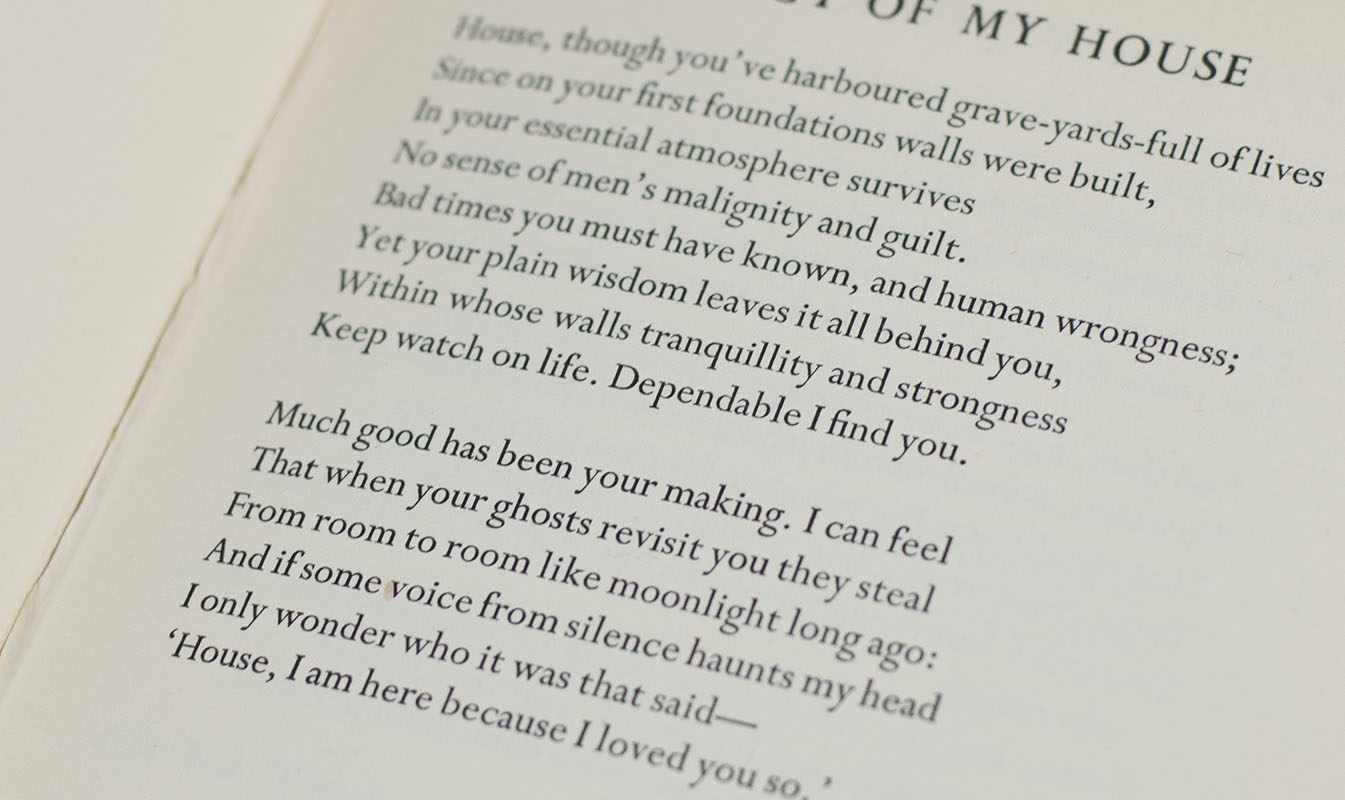 OF MY HOUSE
House, though you've harboured grave-yards-full of lives
Since on your first foundations walls were built,
In your essential atmosphere survives
No sense of men's malignity and guilt.
Bad times you must have known, and human wrongness;
Yet your plain wisdom leaves it all behind you,
Within whose walls tranquillity and strongness
Keep watch on life. Dependable I find you.
Much good has been your making. I can feel
That when your ghosts revisit you they steal
From room to room like moonlight long ago:
And if some voice from silence haunts my head
I only wonder who it was that said—
‘House, I am here because I loved you so.’